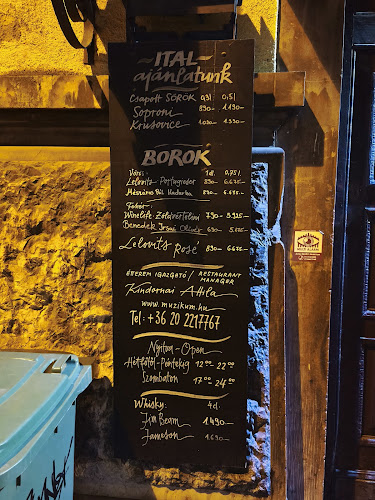 ~ITAL~
ajánlatunk
Csapolt SÖRÖK 0,3l 0,5l
Soproni 890.- 1.190.-
Krusovice 1.090.- 1.390.-
BOROK
Vörös: 1dl. 0,75l.
Lelovits Portugieser 890.- 6.675.-
Mészáros Pál Kadarka 890.- 6.675.-
Fehér:
Winelife Zöldveltelini 790.- 5.925.-
Benedek Irsai Olivér 790.- 5.925.-
Lelovits Rosé 890.- 6.675.-
ÉTTEREM IGAZGATÓ / RESTAURANT
MANAGER
Kindornai Attila
www.muzikum.hu
Tel: +36 20 2217767
Nyitva - Open
Hétfőtől-Péntekig 12 00 22 00
Szombaton 17 00 24 00
Whisky: 4cl.
Jim Beam 1.490.-
Jameson 1.690.-